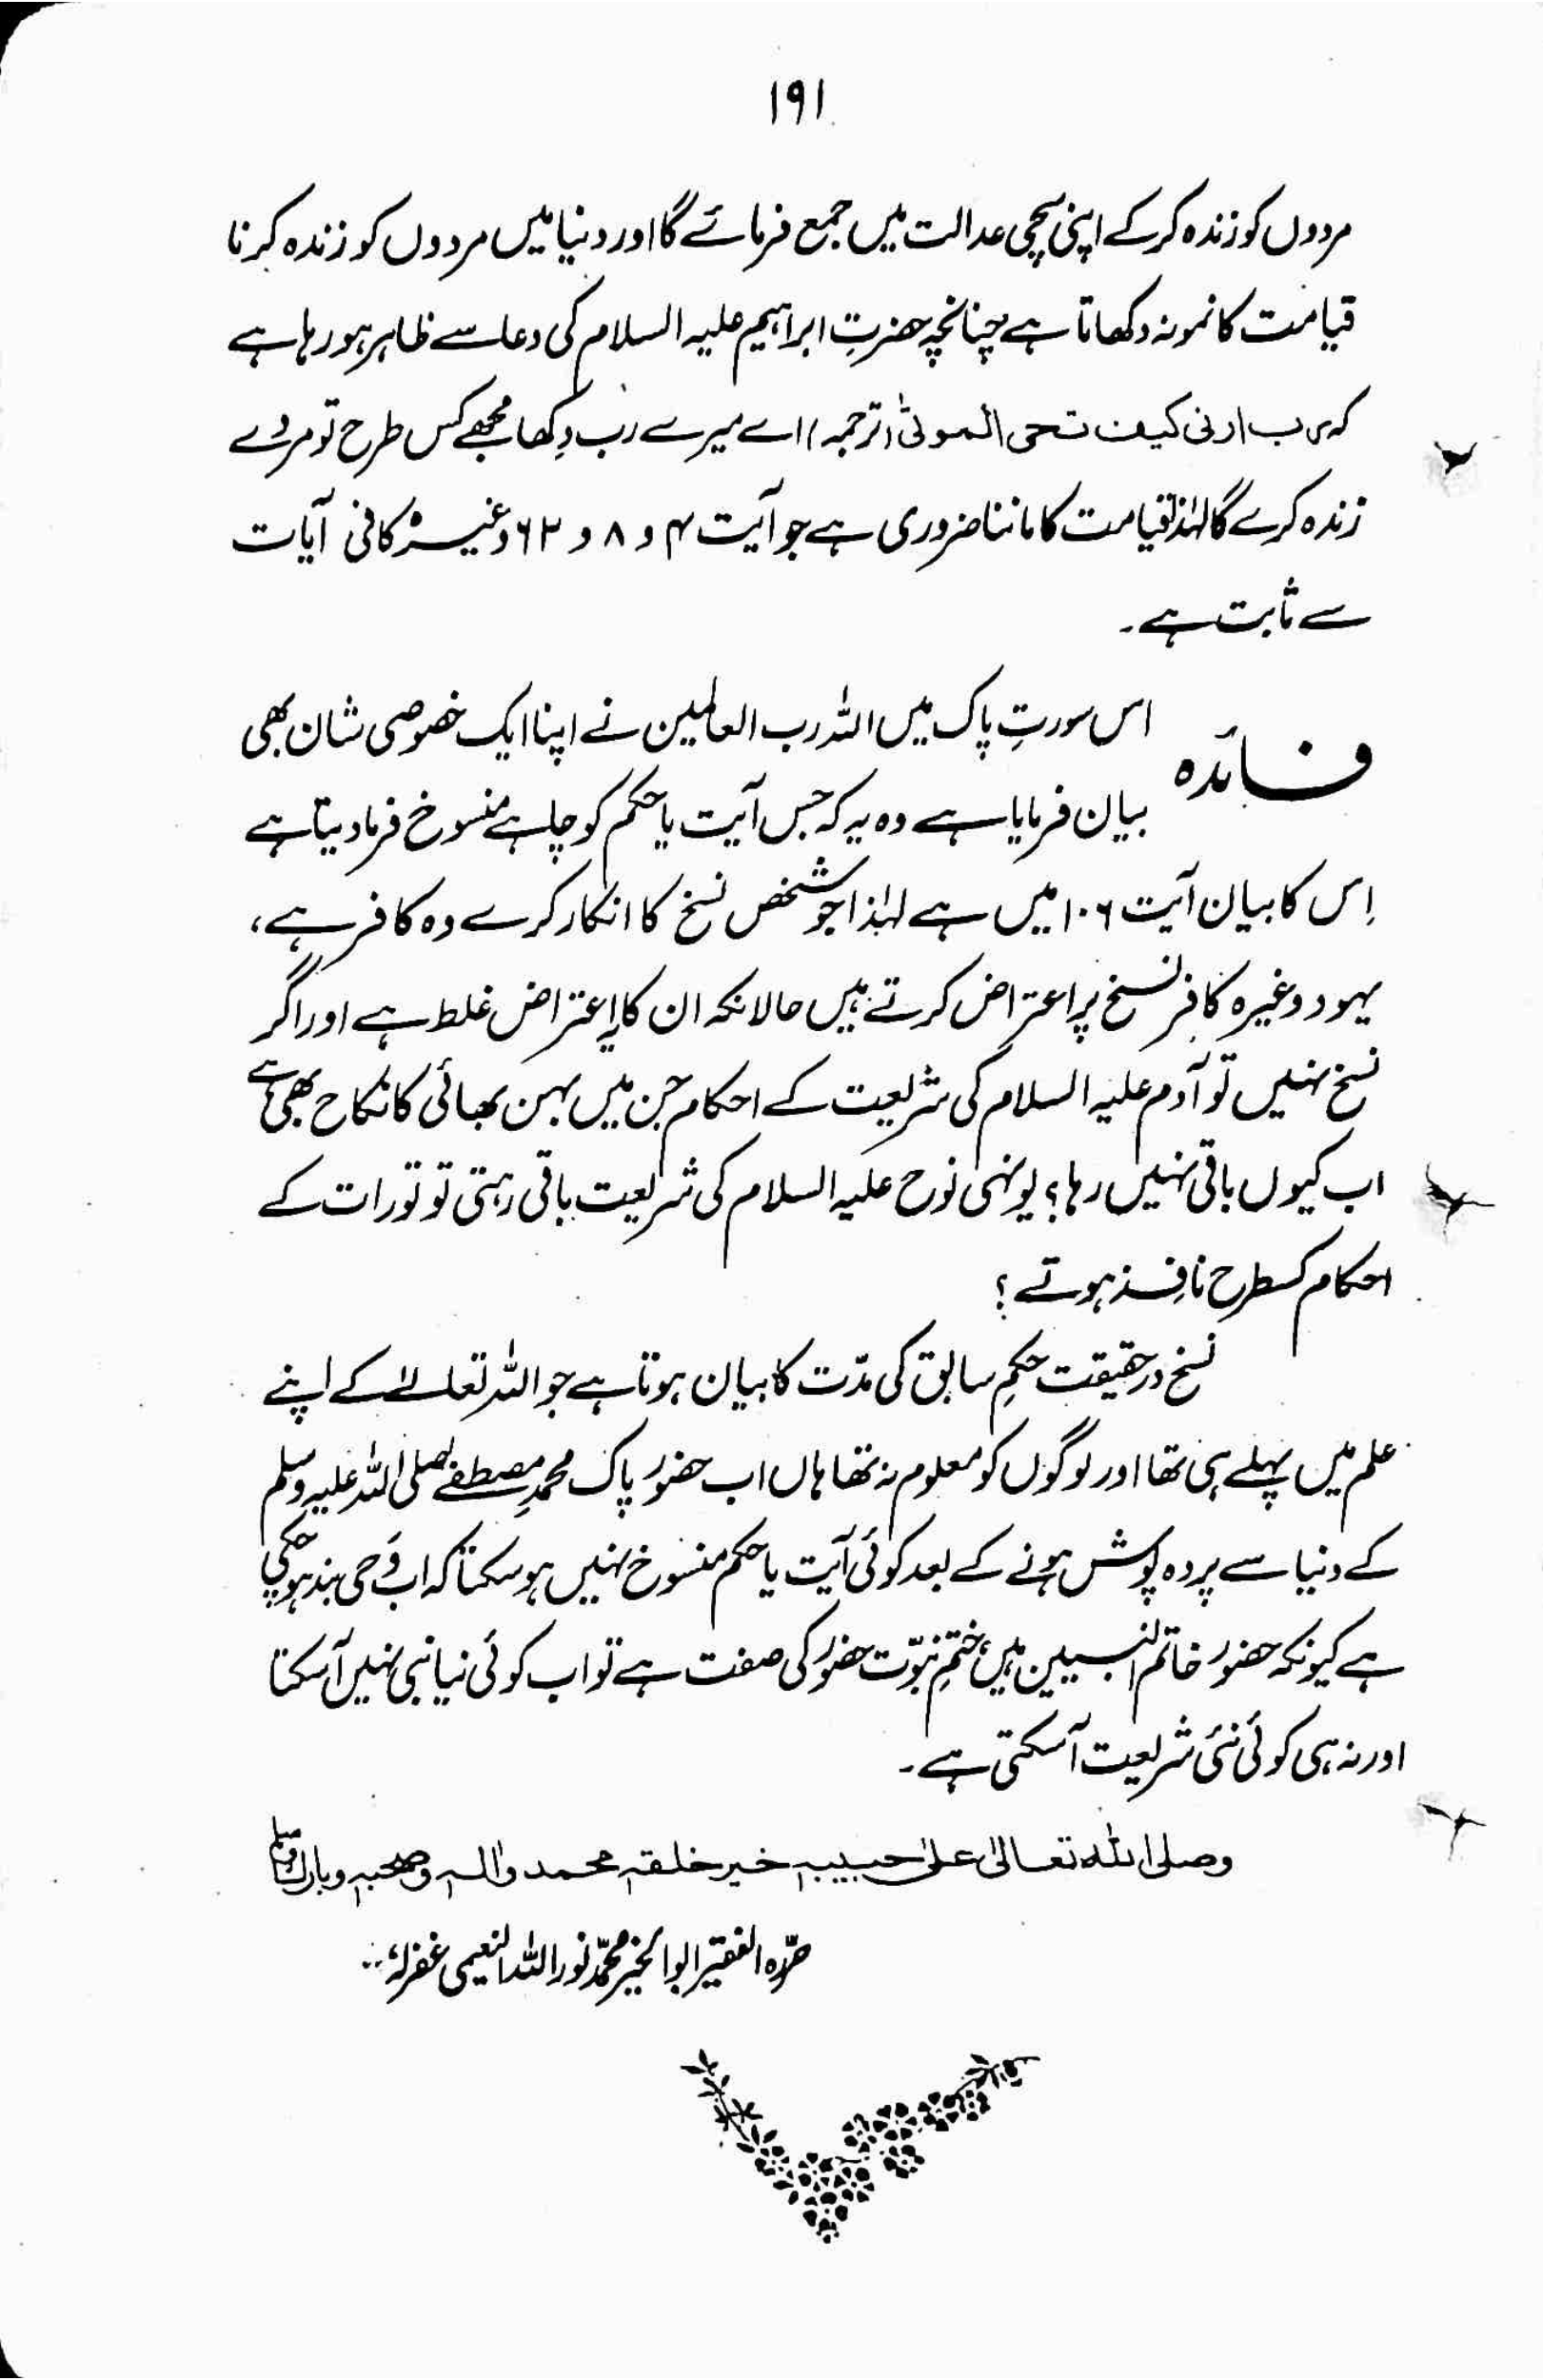 ۱۹۱
مردوں کو زندہ کرکے اپنی سچی عدالت میں جمع فرمائے گا اور دنیا میں مردوں کو زندہ کرنا
قیامت کا نمونہ دکھاتا ہے چنانچہ حضرتِ ابراہیم علیہ السلام کی دعا سے ظاہر ہو رہا ہے
کہ رب ارنی کیف تحی الموتیٰ (ترجمہ) اے میرے رب دِکھا مجھے کس طرح تو مردے
زندہ کرے گا لہٰذا قیامت کا ماننا ضروری ہے جو آیت ۴ و ۸ و ۶۲ وغیرہ کافی آیات
سے ثابت ہے۔
فائدہ
اس سورتِ پاک میں اللہ رب العالمین نے اپنا ایک خصوصی شان بھی
بیان فرمایا ہے وہ یہ کہ جس آیت یا حکم کو چاہے منسوخ فرما دیتا ہے
اِس کا بیان آیت ۱۰۶ میں ہے لہٰذا جو شخص نسخ کا انکار کرے وہ کافر ہے،
یہود وغیرہ کافر نسخ پر اعتراض کرتے ہیں حالانکہ ان کا یہ اعتراض غلط ہے اور اگر
نسخ نہیں تو آدم علیہ السلام کی شریعت کے احکام جن میں بہن بھائی کا نکاح بھی ہے
اب کیوں باقی نہیں رہا؟ یونہی نوح علیہ السلام کی شریعت باقی رہتی تو تورات کے
احکام کسطرح نافِذ ہوتے؟
نسخ درحقیقت حکمِ سابق کی مدّت کا بیان ہوتا ہے جو اللہ تعالےٰ کے اپنے
علم میں پہلے ہی تھا اور لوگوں کو معلوم نہ تھا ہاں اب حضور پاک محمدِ مصطفےٰ صلی اللہ علیہ وسلم
کے دنیا سے پردہ پوش ہونے کے بعد کوئی آیت یا حکم منسوخ نہیں ہو سکتا کہ اب وَحی بند ہو چکی
ہے کیونکہ حضور خاتم النبیین ہیں، ختمِ نبوّت حضور کی صفت ہے تو اب کوئی نیا نبی نہیں آ سکتا
اور نہ ہی کوئی نئی شریعت آ سکتی ہے۔
وصلی اللہ تعالیٰ علیٰ حبیبہٖ خیر خلقہٖ محمد واٰلہٖ وصحبہٖ وبارک وسلم
حرّرہ الفقیر ابو الخیر محمّد نور اللہ النعیمی غفرلہٗ